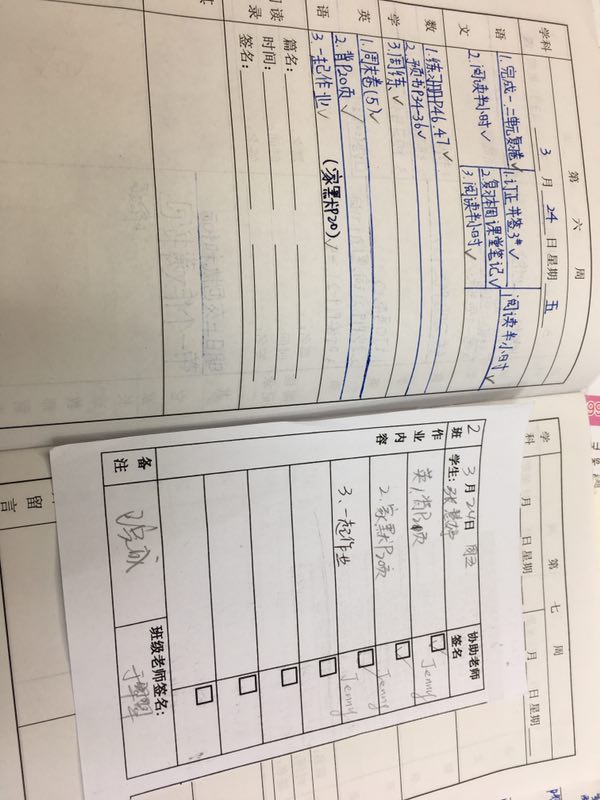 第 六 周
学科
3 月 24 日 星期 五
语
文
1.完成一.二单元复卷✓
2.阅读半小时✓
1.订正并签3#✓
2.复习本周课堂笔记✓
3.阅读半小时✓
阅读半小时✓
数
学
1.练习册P46.47✓
2.预书P34-36✓
3.周练✓
英
语
1.周末卷(5)✓
2.背P20页✓
(家默P20)✓
3.一起作业✓
阅读
录
篇名:
时间:
签名:
其
学
科
第 七 周
月 日 星期
月 日 星期
留
言
2
班
3月24日 周五
学生:
协助老师
签名
作
业
内
容
英1.背P20页
Jenny
2.家默P20页
Jenny
3、一起作业
Jenny
备
注
班级老师签名: